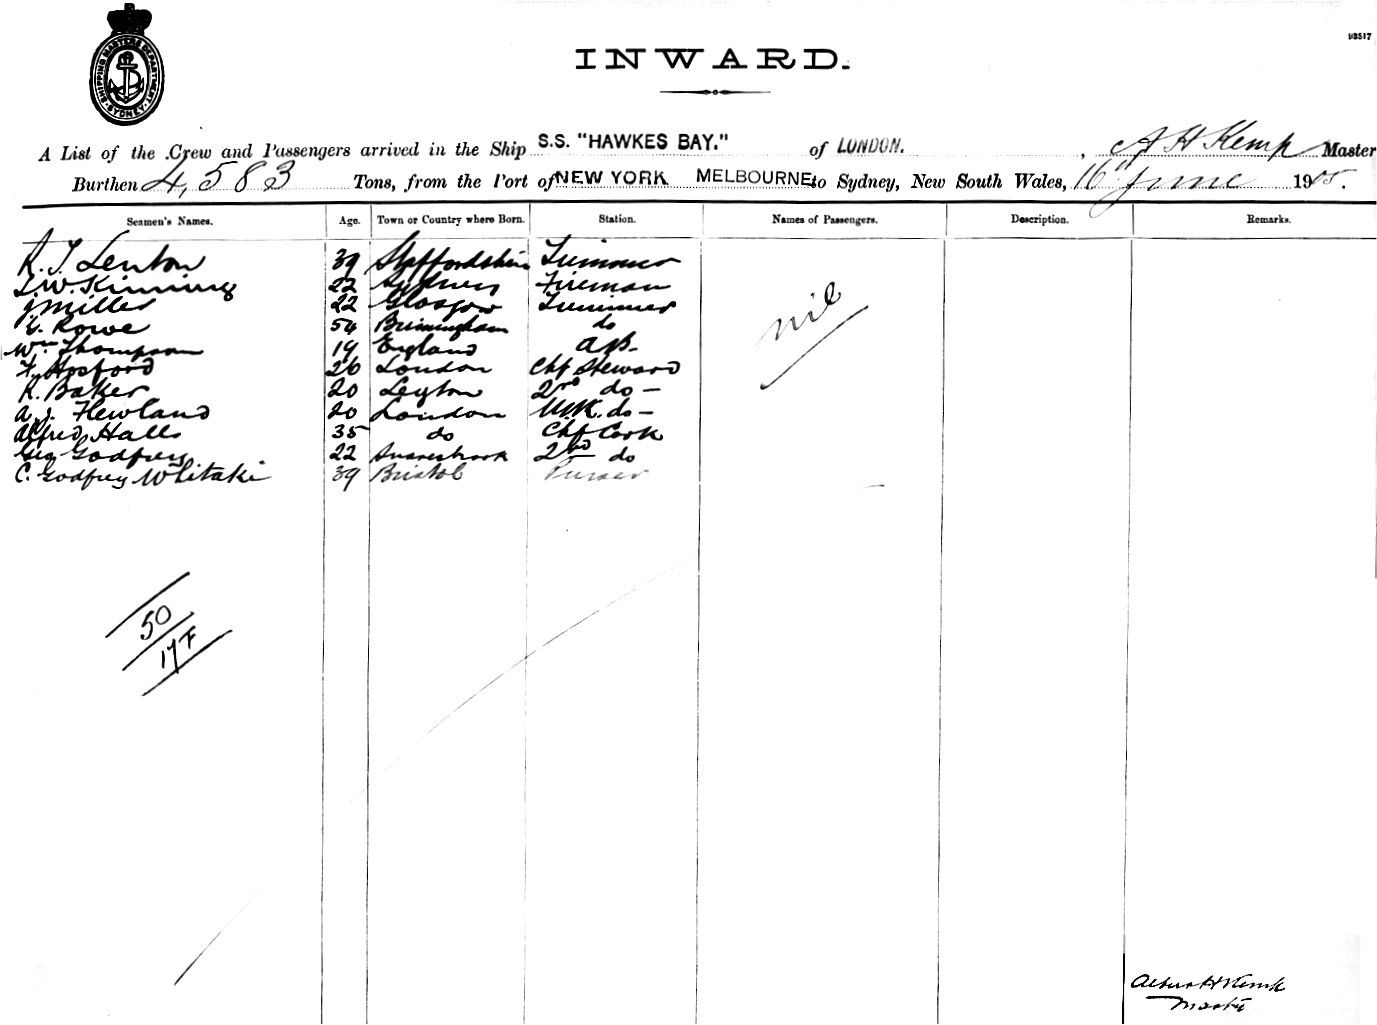 SHIPPING MASTERS DEPARTMENT SYDNEY
93517
INWARD.
A List of the Crew and Passengers arrived in the Ship S.S. "HAWKES BAY." of LONDON. , A H Kemp Master
Burthen 4,583 Tons, from the Port of NEW YORK MELBOURNE to Sydney, New South Wales, 16th June 1905.
Seamen's Names. Age. Town or Country where Born. Station. Names of Passengers. Description. Remarks.
R. J. Lenton 39 Staffordshire Trimmer
T. W. Kinning 22 Sydney Fireman
J Miller 22 Glasgow Trimmer
E. Rowe 54 Birmingham do
Wm Thompson 19 England A.B.
F. Hosford 26 London Chf Steward
R. Baker 20 Leyton 2nd do -
A. J. Hewland 20 London M.R. do -
Alfred Halls 35 do Chf Cook
Geo Godfrey 22 Snaresbrook 2nd do
C. Godfrey Whitaki 39 Bristol Purser
nil
50
17 F
Albert H Kemp
Master